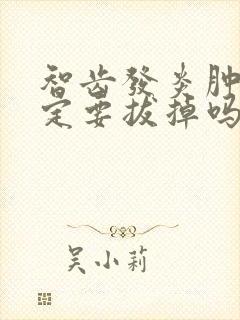 智齿發炎肿
定要拔掉吗
吴小莉